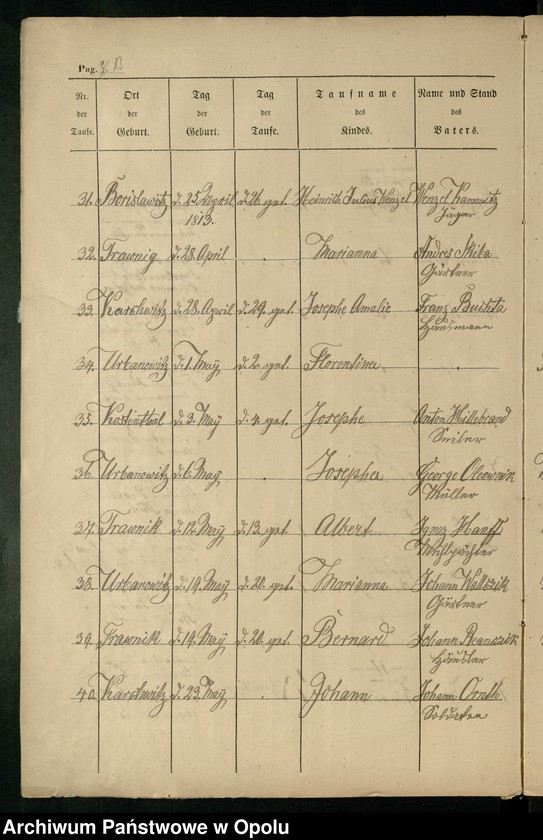 Pag. 7. B
Nr. der Taufe. Ort der Geburt. Tag der Geburt. Tag der Taufe. Taufname des Kindes. Name und Stand des Vaters.
31. Borislawitz d. 25. April 1813. d. 26. get. Heinrich Julius Wenzel Wenzel
Jäger
32. Trawnig d. 28. April . Marianna Andres Skiba
Gärtner
33. Karchwitz d. 28. April d. 29. get. Josephe Amalie Franz Buchta
Häusmann
34. Urbanowitz d. 1. May d. 2. get. Florentine .
35. Kostenthal d. 3. May d. 4. get. Josephe Anton Hillebrand
Seiler
36. Urbanowitz d. 6. May . Josepha George
Müller
37. Trawnik d. 12. May d. 13. get. Albert Ignaz Hanff
Mühlpächter
38. Urbanowitz d. 19. May d. 20. get. Marianna Johann
Gärtner
39. Trawnik d. 19. May d. 20. get. Bernard Johann
Häusler
40. Karchwitz d. 23. May . Johann Johann
Soldaten
Archiwum Państwowe w Opolu